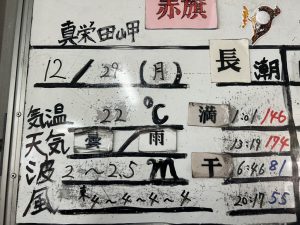 赤旗
真栄田岬
12/29(月) 長潮
気温 22℃ 満 1:01 146
天気 曇/雨 13:19 174
波 2～2.5m 干 6:46 81
風 4～4～4～4 20:17 55